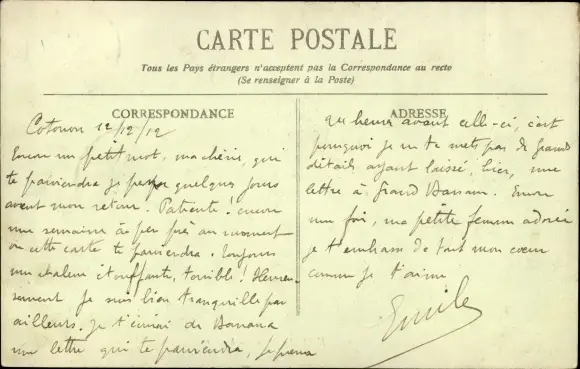 CARTE POSTALE
Tous les Pays étrangers n'acceptent pas la Correspondance au recto
(Se renseigner à la Poste)
CORRESPONDANCE
Cotonou 12/12/12
Encore un petit mot, ma chérie, qui
te parviendra je pense quelques jours
avant mon retour. Patiente ! encore
une semaine à peu près au moment
où cette carte te parviendra. Toujours
une chaleur étouffante, terrible ! Heureu-
sement je suis bien tranquille par
ailleurs. Je t'écrirai de
une lettre qui te parviendra, je pense
ADRESSE
qq heures avant celle-ci, c'est
pourquoi je ne te mets pas de grands
détails ayant laissé, hier, une
lettre à Grand Bassam. Encore
une fois, ma petite femme adorée
je t'embrasse de tout mon coeur
comme je t'aime
Emile